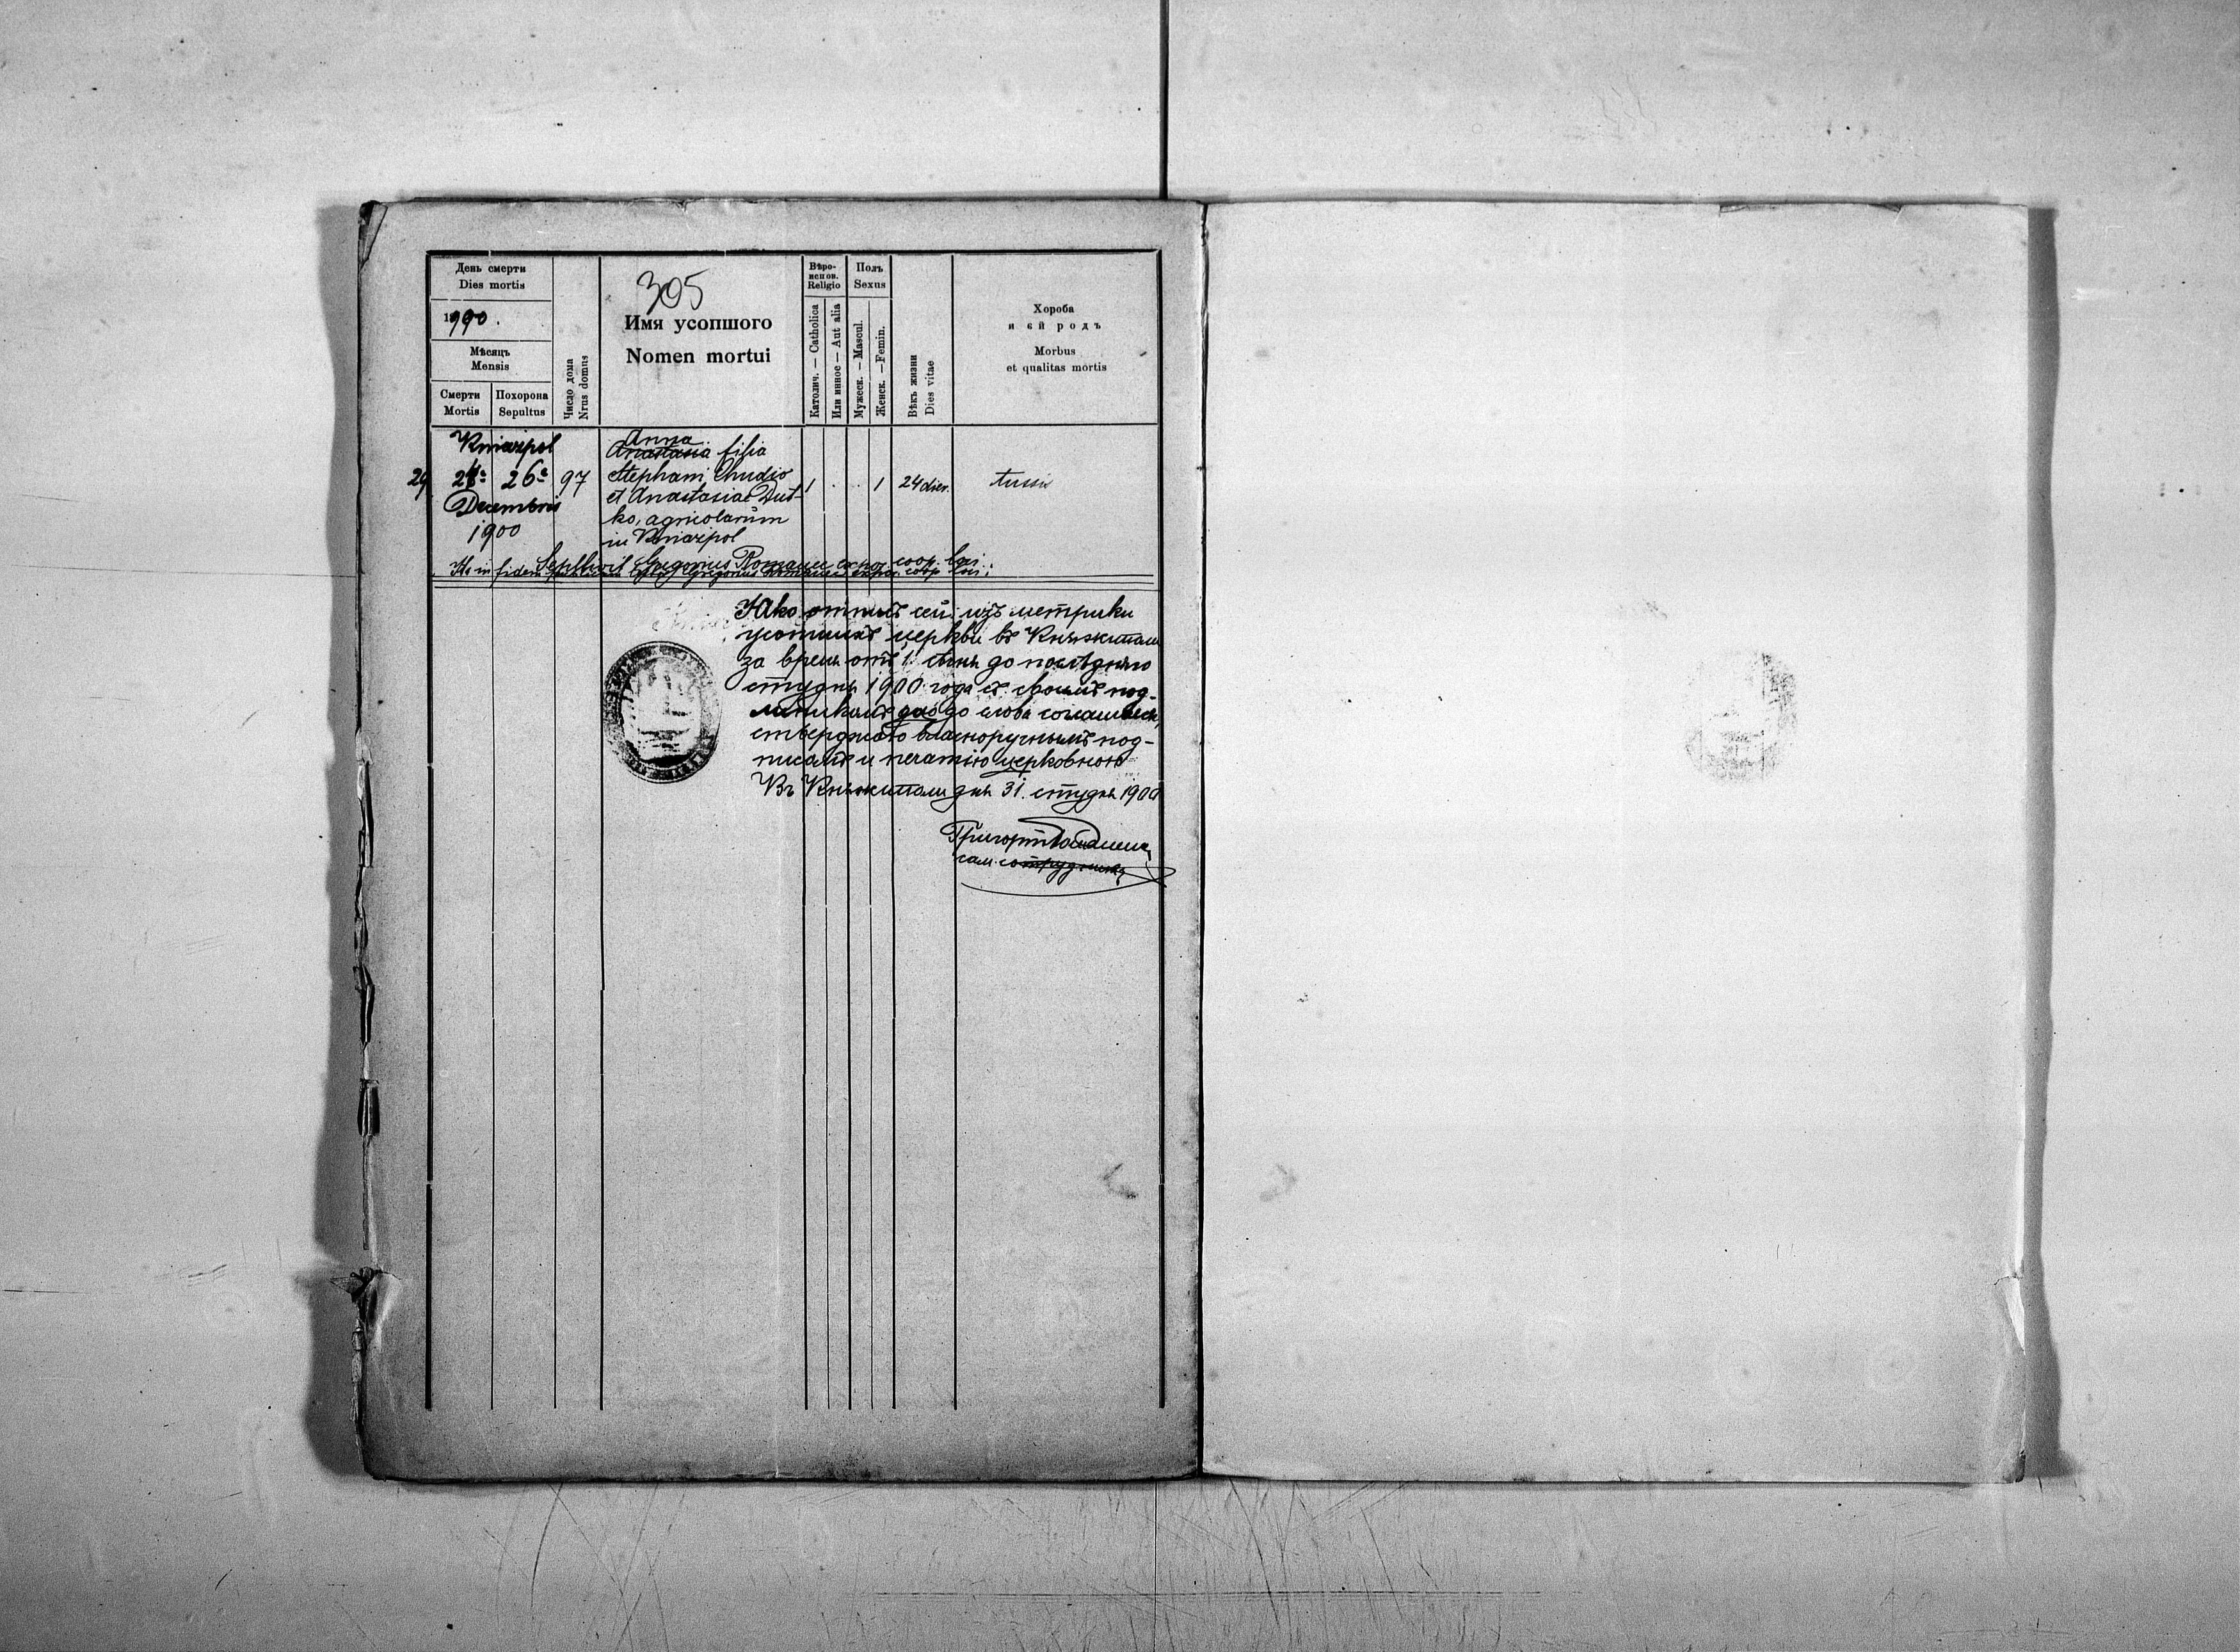 День смерти
Dies mortis
1900.
Мѣсяцъ
Mensis
Смерти
Mortis
Похорона
Sepultus
Число дома
Nrus domus
305
Имя усопшого
Nomen mortui
Вѣро-
испов.
Religio
Католич. — Catholica
Или инное — Aut alia
Полъ
Sexus
Мужеск. — Mascul.
Женск. — Femin.
Вѣкъ жизни
Dies vitae
Хороба
и єй родъ
Morbus
et qualitas mortis
Kniazipol
29. 24ª 26ª 97
Decembris
1900
Anna
Anastasia filia
Stephani Chudio
et Anastasiae Dut-
ko, agricolarum
in Kniazipol
1 . . 1 24 dies. tussis
Sepelivit Gregorius Romanec expos. coop. loci.
Яко отписъ сей изъ метрики
усопшихъ церкви въ Княжиполи
за время отъ 1. сѣчня до послѣдняго
студня 1900 года съ своимъ под-
линикомъ до слова
стверджаю власноручнымъ под-
писомъ и печатію церковною
Въ Княжиполи дня 31. студня 1900
Григорій Романец
сам. сотрудникъ